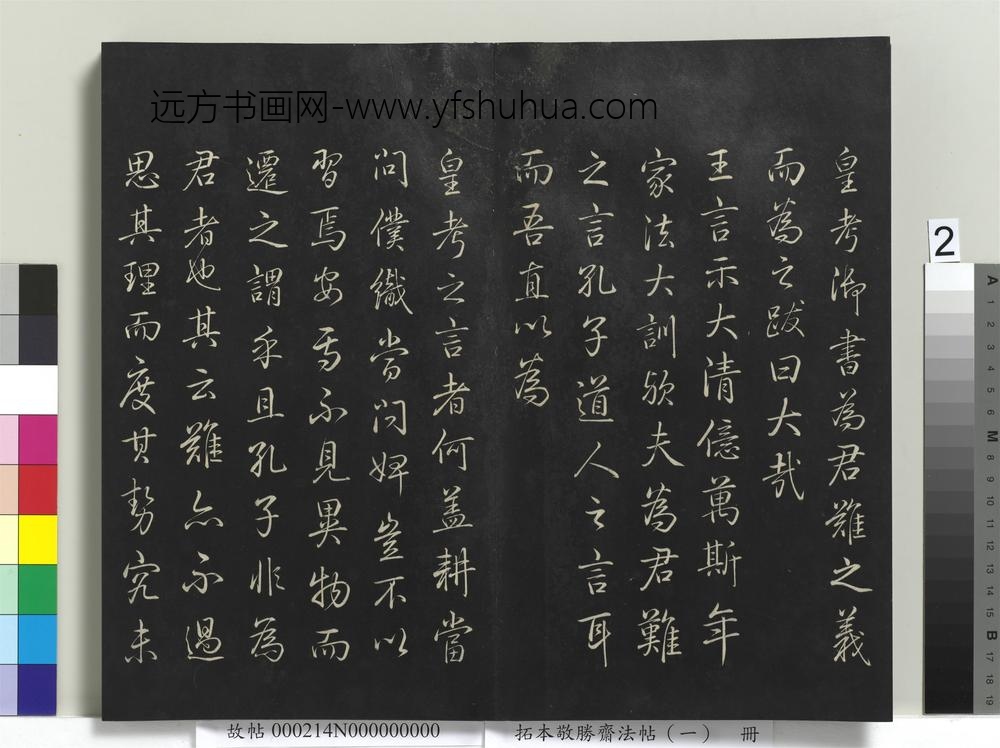 远方书画网-www.yfshuhua.com
皇考御書為君難之義
而為之跋曰大哉
王言示大清億萬斯年
家法大訓欤夫為君難
之言孔子道人之言耳
而吾直以為
皇考之言者何盖耕當
问僕織當问婢豈不以
習焉安焉不見異物而
遷之謂乎且孔子非為
君者也其云難亦不過
思其理而度其勢究未
2
故帖 000214N000000000
拓本敬勝齋法帖（一） 冊
A 1 2 3 4 5 6 M 8 9 10 11 12 13 14 15 B 17 18 19